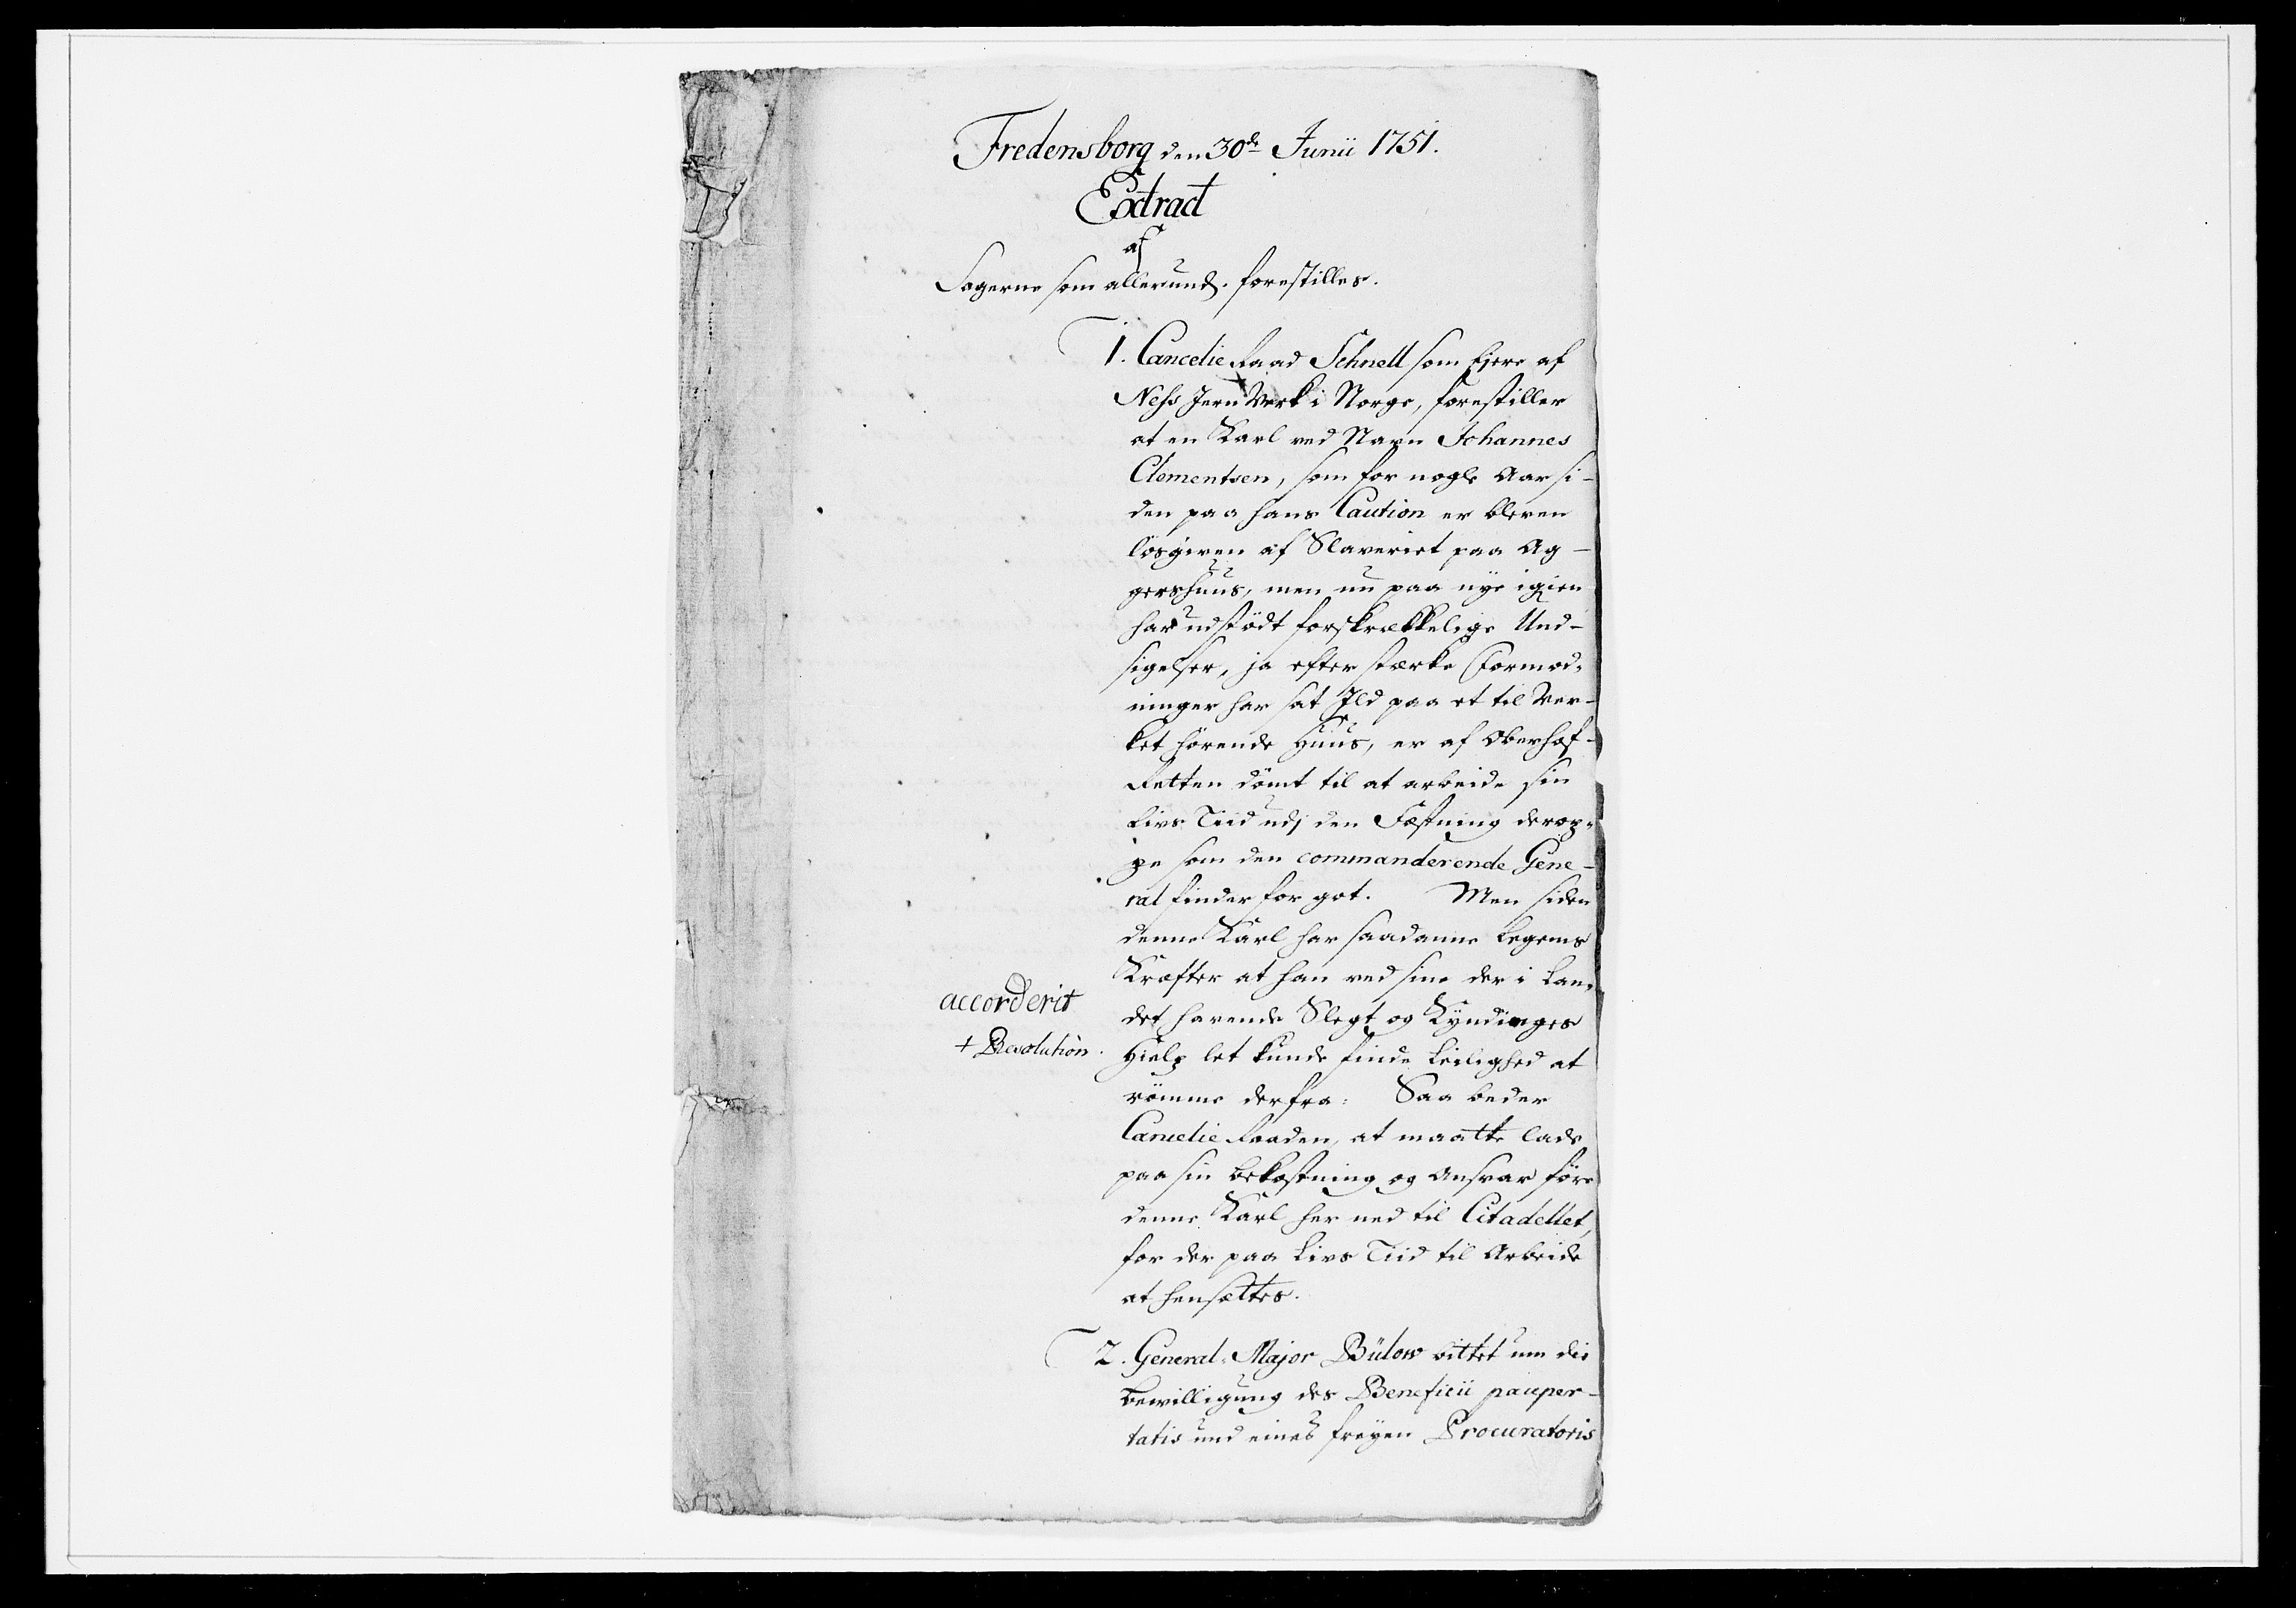 Fredensborg den 30de Junii 1751.
Extract
af
Sagerne som allerund. forestilles.
1. Cancelie Raad Schnell som Ejere af
Ness Jern Verk i Norge, forestiller
at en Karl ved Navn Johannes
Clementsen, som for nogle Aar si-
den paa hans Caution er bleven
lösgiven af Slaveriet paa Ag-
gershuus, men nu paa nye igien
har udstödt forskrækkelige Und-
sigelser, ja efter stærke Formod-
ninger har sat Ild paa et til Ver-
ket hörende Huus, er af Oberhof-
Retten dömt til at arbeide sin
Livs Tiid udj den Fæstning derop-
pe som den commanderende Gene-
ral finder for got. Men siden
denne Karl har saadanne Legems
Kræfter at han ved sine der i Lan-
det havende Slegt og Kyndinges
Hielp let kunde finde Leilighed at
römme derfra: Saa beder
Cancelie Raaden, at maatte lade
paa sin Bekostning og Ansvar före
denne Karl her ned til Citadellet,
for der paa Livs Tiid til Arbeide
at hensættes.
accorderit
+ Resolution.
2. General-Major Bülow bittet um die
Bewilligung des Beneficii pauper-
tatis und eines freyen Procuratoris